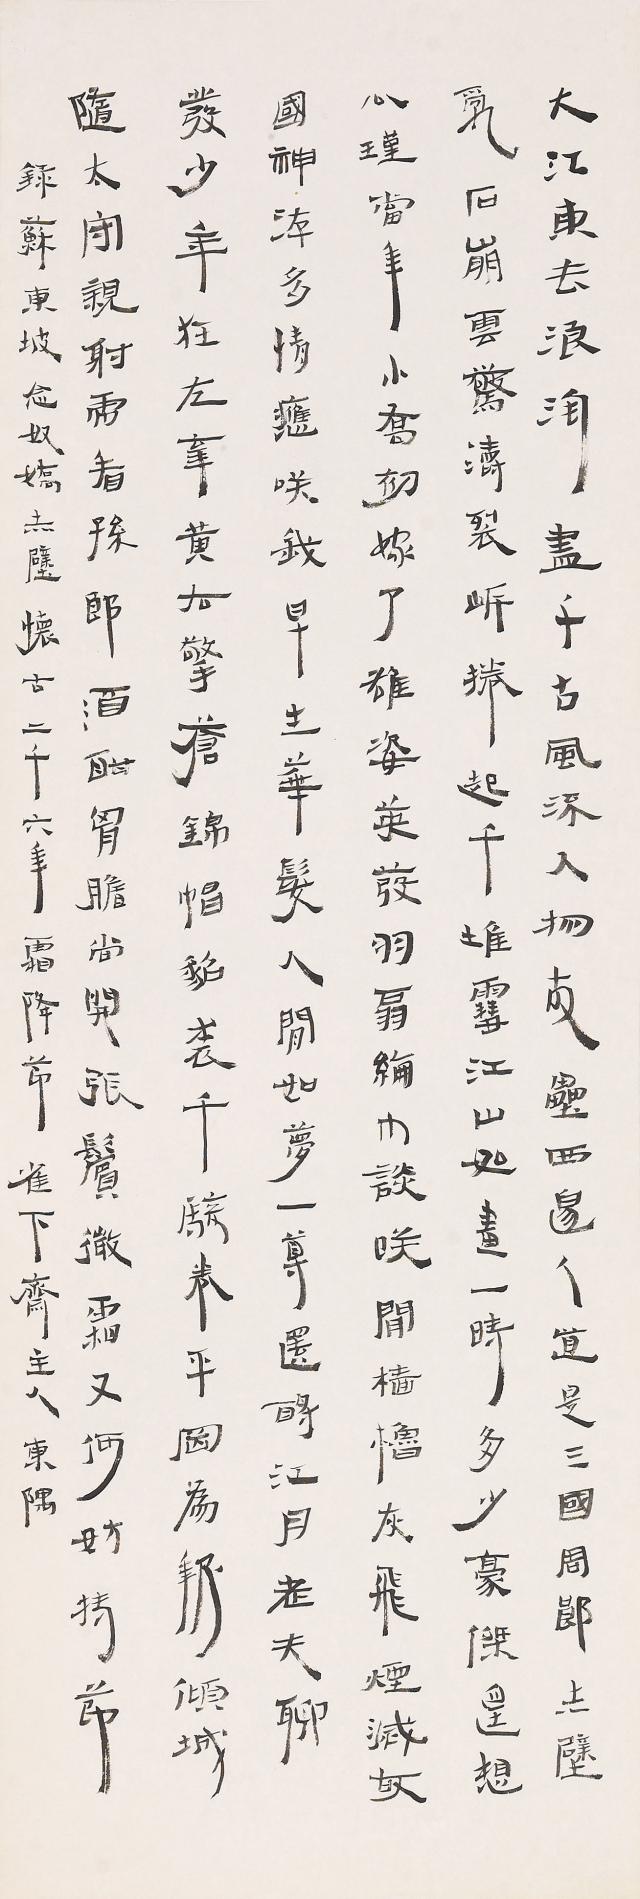 大江東去浪淘盡千古風流人物故壘西邊人道是三國周郎赤壁
亂石崩雲驚濤裂岸捲起千堆雪江山如畫一時多少豪傑遙想
公瑾當年小喬初嫁了雄姿英發羽扇綸巾談咲間檣櫓灰飛煙滅故
國神游多情應咲我早生華髮人間如夢一尊還酹江月老夫聊
發少年狂左牽黃右擎蒼錦帽貂裘千騎卷平岡為報傾城
隨太守親射虎看孫郎酒酣胷膽尚開張鬢微霜又何妨持節
錄蘇東坡念奴嬌赤壁懷古二千六年霜降節雀下齋主人東隅